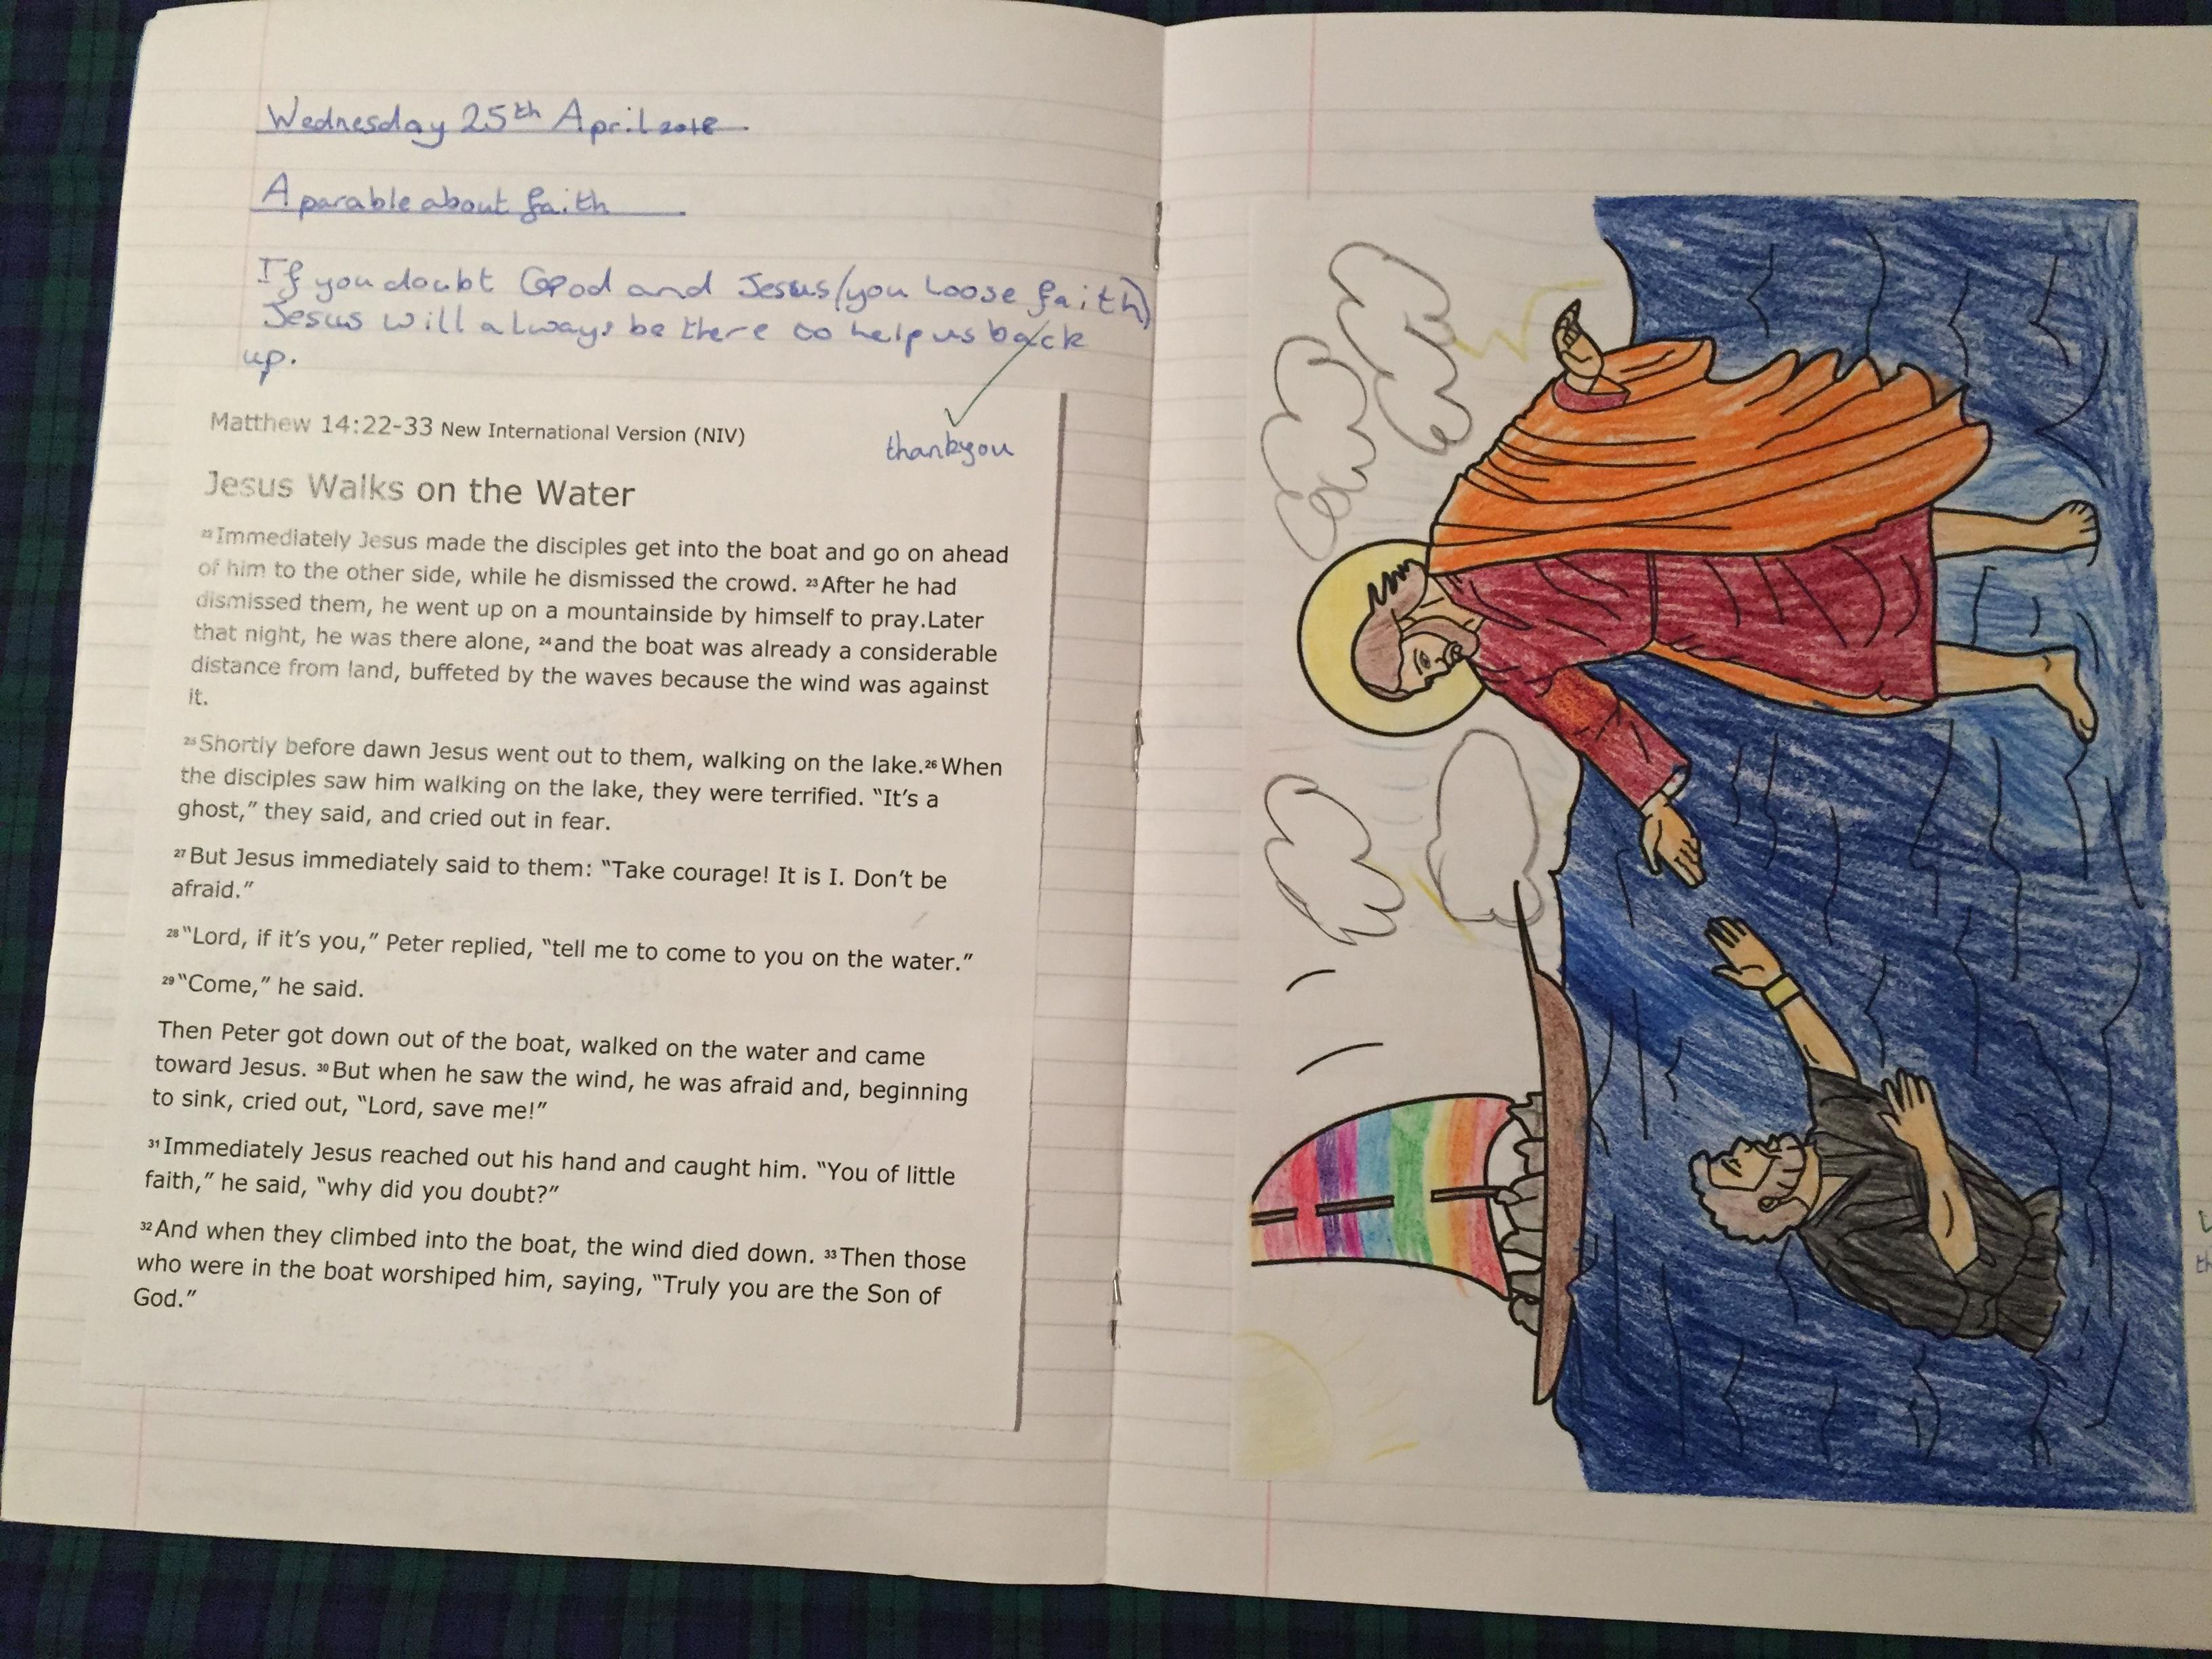 Wednesday 25th April 2018
A parable about faith
If you doubt God and Jesus/(you loose faith)
Jesus will always be there to help us back
up.
thankyou
Matthew 14:22-33 New International Version (NIV)
Jesus Walks on the Water
22 Immediately Jesus made the disciples get into the boat and go on ahead
of him to the other side, while he dismissed the crowd. 23 After he had
dismissed them, he went up on a mountainside by himself to pray.Later
that night, he was there alone, 24 and the boat was already a considerable
distance from land, buffeted by the waves because the wind was against
it.
25 Shortly before dawn Jesus went out to them, walking on the lake.26 When
the disciples saw him walking on the lake, they were terrified. “It’s a
ghost,” they said, and cried out in fear.
27 But Jesus immediately said to them: “Take courage! It is I. Don’t be
afraid.”
28 “Lord, if it’s you,” Peter replied, “tell me to come to you on the water.”
29 “Come,” he said.
Then Peter got down out of the boat, walked on the water and came
toward Jesus. 30 But when he saw the wind, he was afraid and, beginning
to sink, cried out, “Lord, save me!”
31 Immediately Jesus reached out his hand and caught him. “You of little
faith,” he said, “why did you doubt?”
32 And when they climbed into the boat, the wind died down. 33 Then those
who were in the boat worshiped him, saying, “Truly you are the Son of
God.”